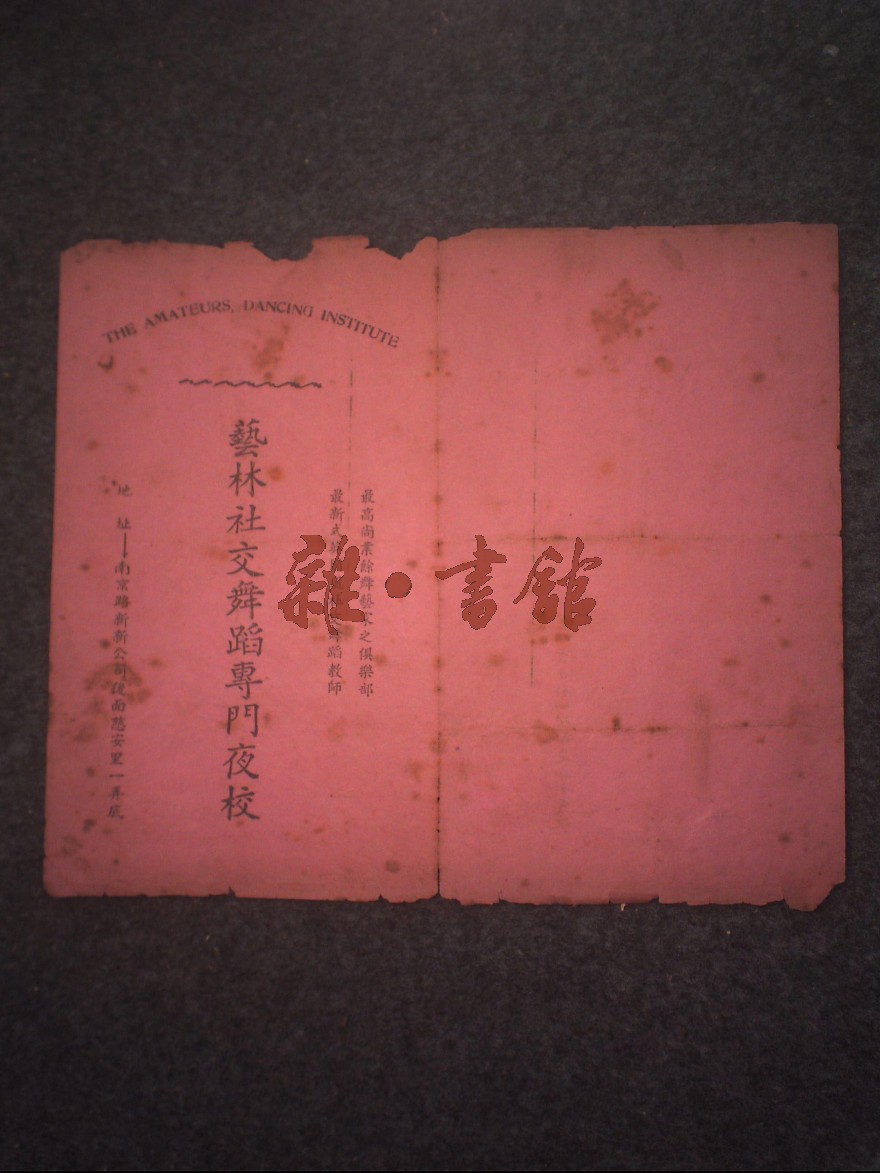 THE AMATEURS, DANCING INSTITUTE
最高尚業餘舞藝家之俱樂部
最新式 舞蹈教師
藝林社交舞蹈專門夜校
地址——南京路新新公司後面慈安里一弄底
雜·書館